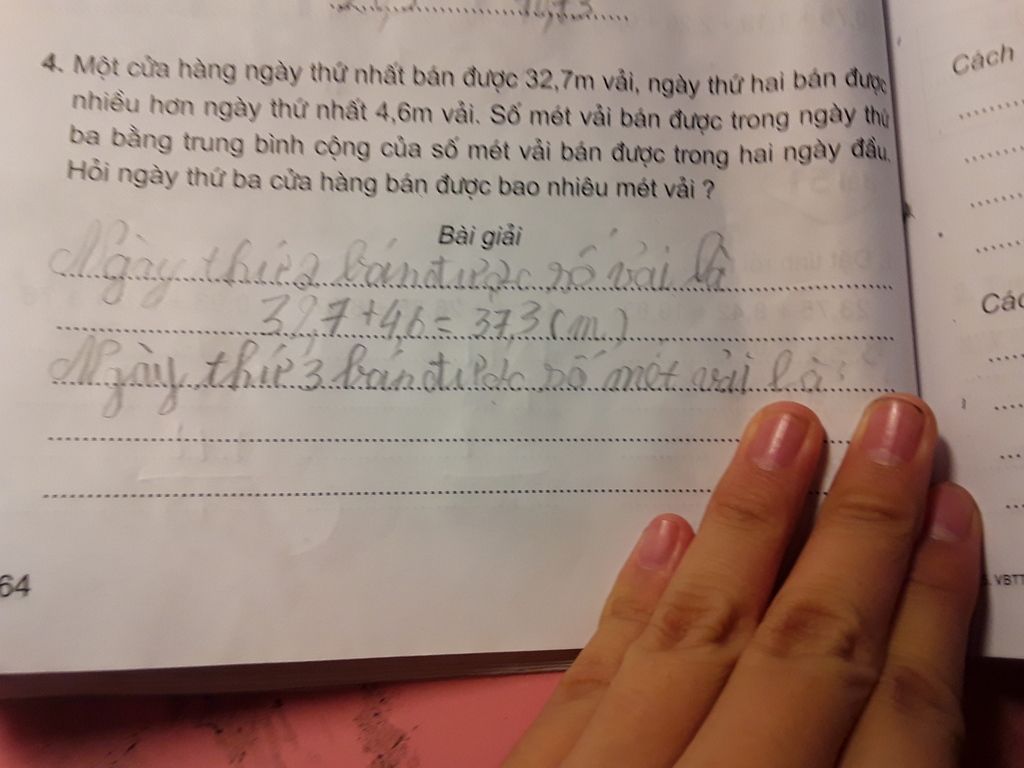 4. Một cửa hàng ngày thứ nhất bán được 32,7m vải, ngày thứ hai bán được
nhiều hơn ngày thứ nhất 4,6m vải. Số mét vải bán được trong ngày thứ
ba bằng trung bình cộng của số mét vải bán được trong hai ngày đầu.
Hỏi ngày thứ ba cửa hàng bán được bao nhiêu mét vải ?
Bài giải
Ngày thứ 2 bán được số vải là
32,7+4,6=37,3(m)
Ngày thứ 3 bán được số mét vải là:
64
Cách
Các
VBTT